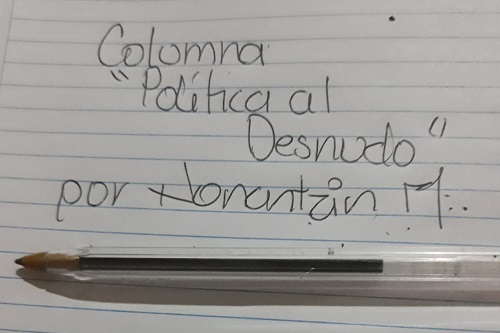 Columna
"Política al
Desnudo"
por M:.